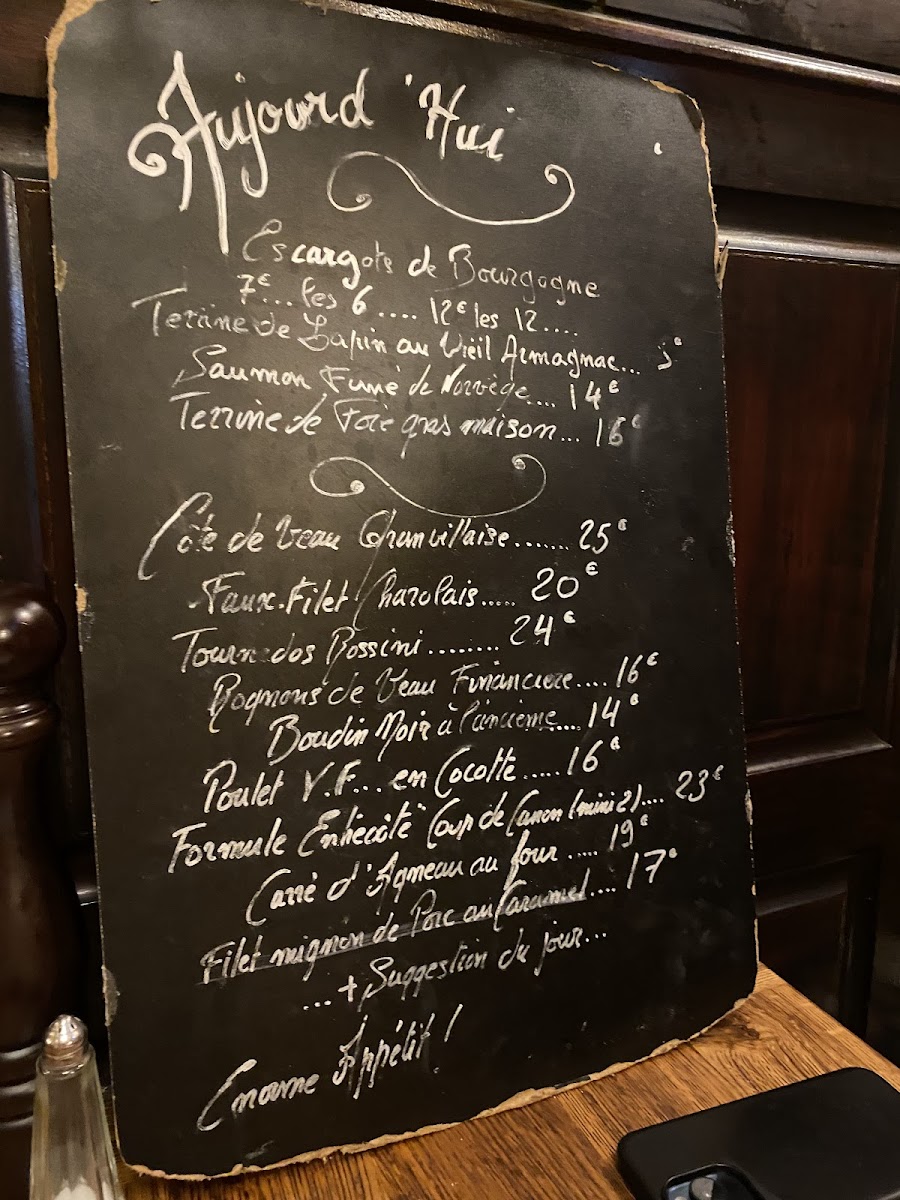 Aujourd'Hui
Escargots de Bourgogne
7€... les 6 .... 12€ les 12....
Terrine de Lapin au Vieil Armagnac...
Saumon Fumé de Norvège.... 14€
Terrine de Foie gras maison... 16€
Côte de Veau Granvillaise....... 25€
Faux-Filet Charolais..... 20€
Tournedos Rossini........ 24€
Rognons de Veau Financière.... 16€
Boudin Noir à l'ancienne.... 14€
Poulet V.F... en Cocotte..... 16€
Formule Entrecôte "Coup de Canon (mini 2).... 23€
Carré d'Agneau au four ..... 19€
Filet mignon de Porc au Caramel.... 17€
...+ Suggestion du jour...
Enorme Appétit !